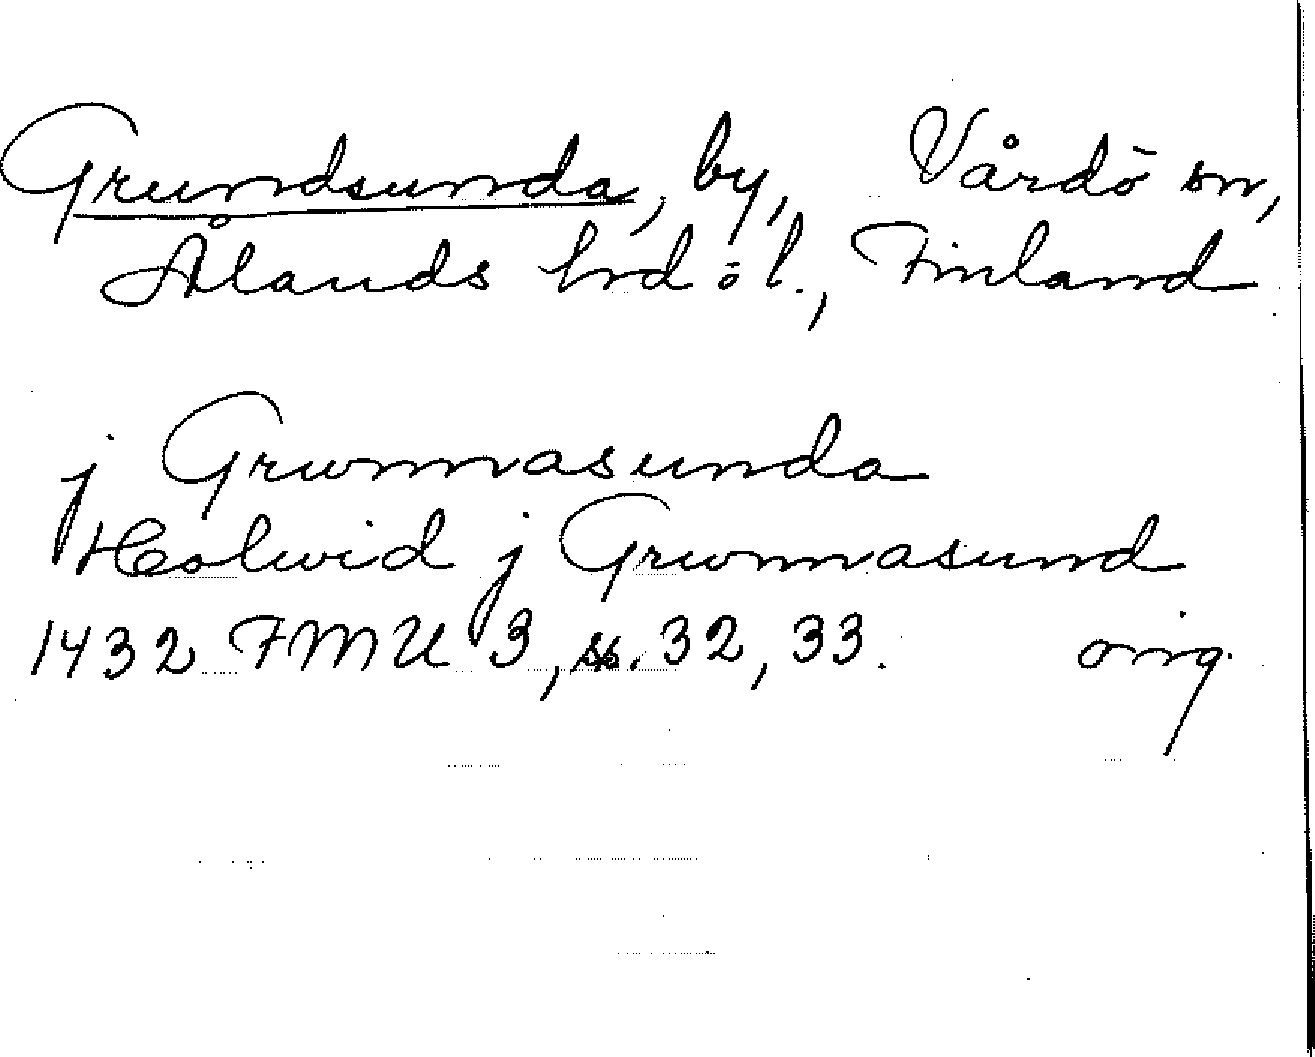 Grundsunda, by, Vårdö sn,
Ålands hd ö l., Finland
j Grwnnasunda
Holwid j Grwnnasund
1432 FMU 3, s. 32, 33. orig.